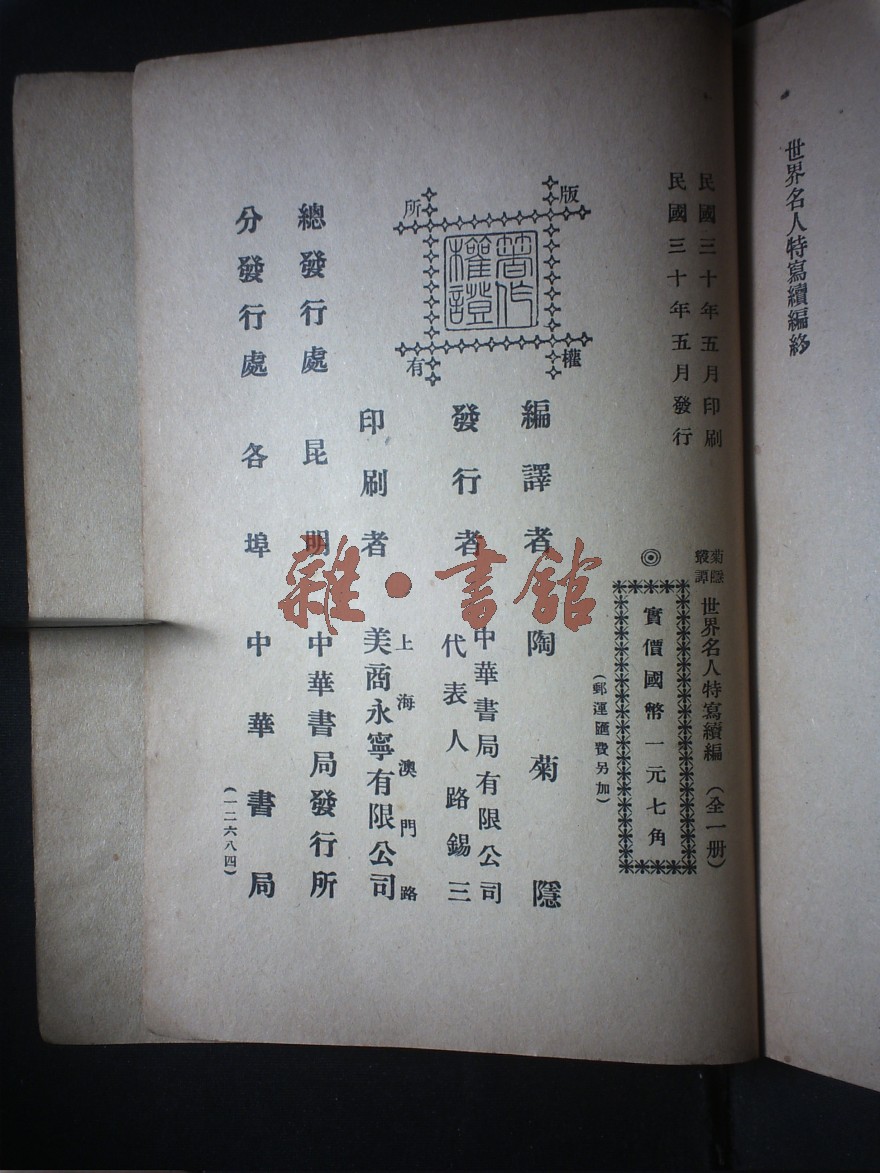 世界名人特寫續編終
民國三十年五月印刷
民國三十年五月發行
菊隱
叢譚
世界名人特寫續編
(全一册)
◎
實價國幣一元七角
(郵運匯費另加)
版權
所有
著作
權證
編譯者 陶菊隱
發行者 中華書局有限公司
代表人 路錫三
印刷者 上海澳門路
美商永寧有限公司
總發行處 昆明 中華書局發行所
分發行處 各埠 中華書局
(一二六八四)
雜·書館